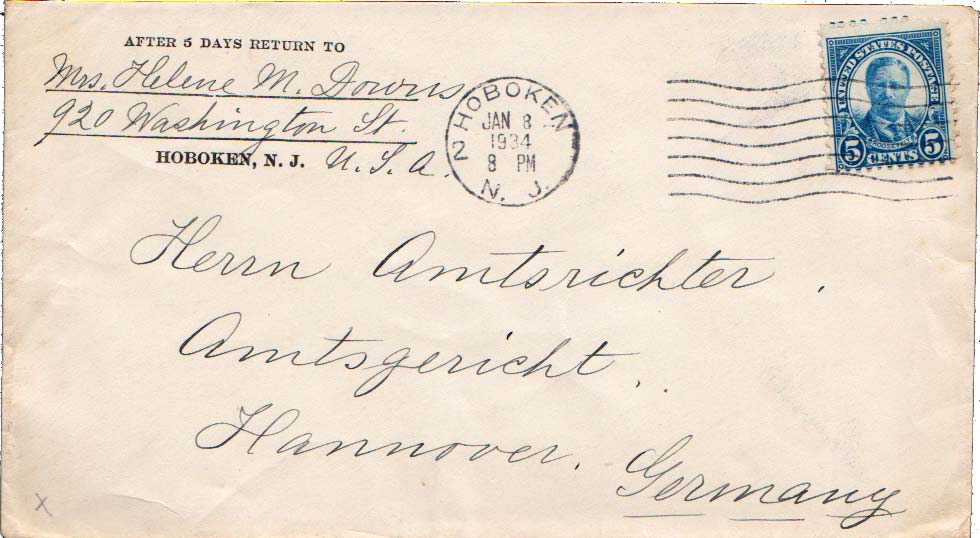 AFTER 5 DAYS RETURN TO
Mrs. Helene M. Downs
920 Washington St.
HOBOKEN, N. J. U. S. A.
HOBOKEN
2
JAN 8
1934
8 PM
N. J.
UNITED STATES POSTAGE
ROOSEVELT
5 CENTS 5
Herrn Amtsrichter,
Amtsgericht,
Hannover. Germany
X